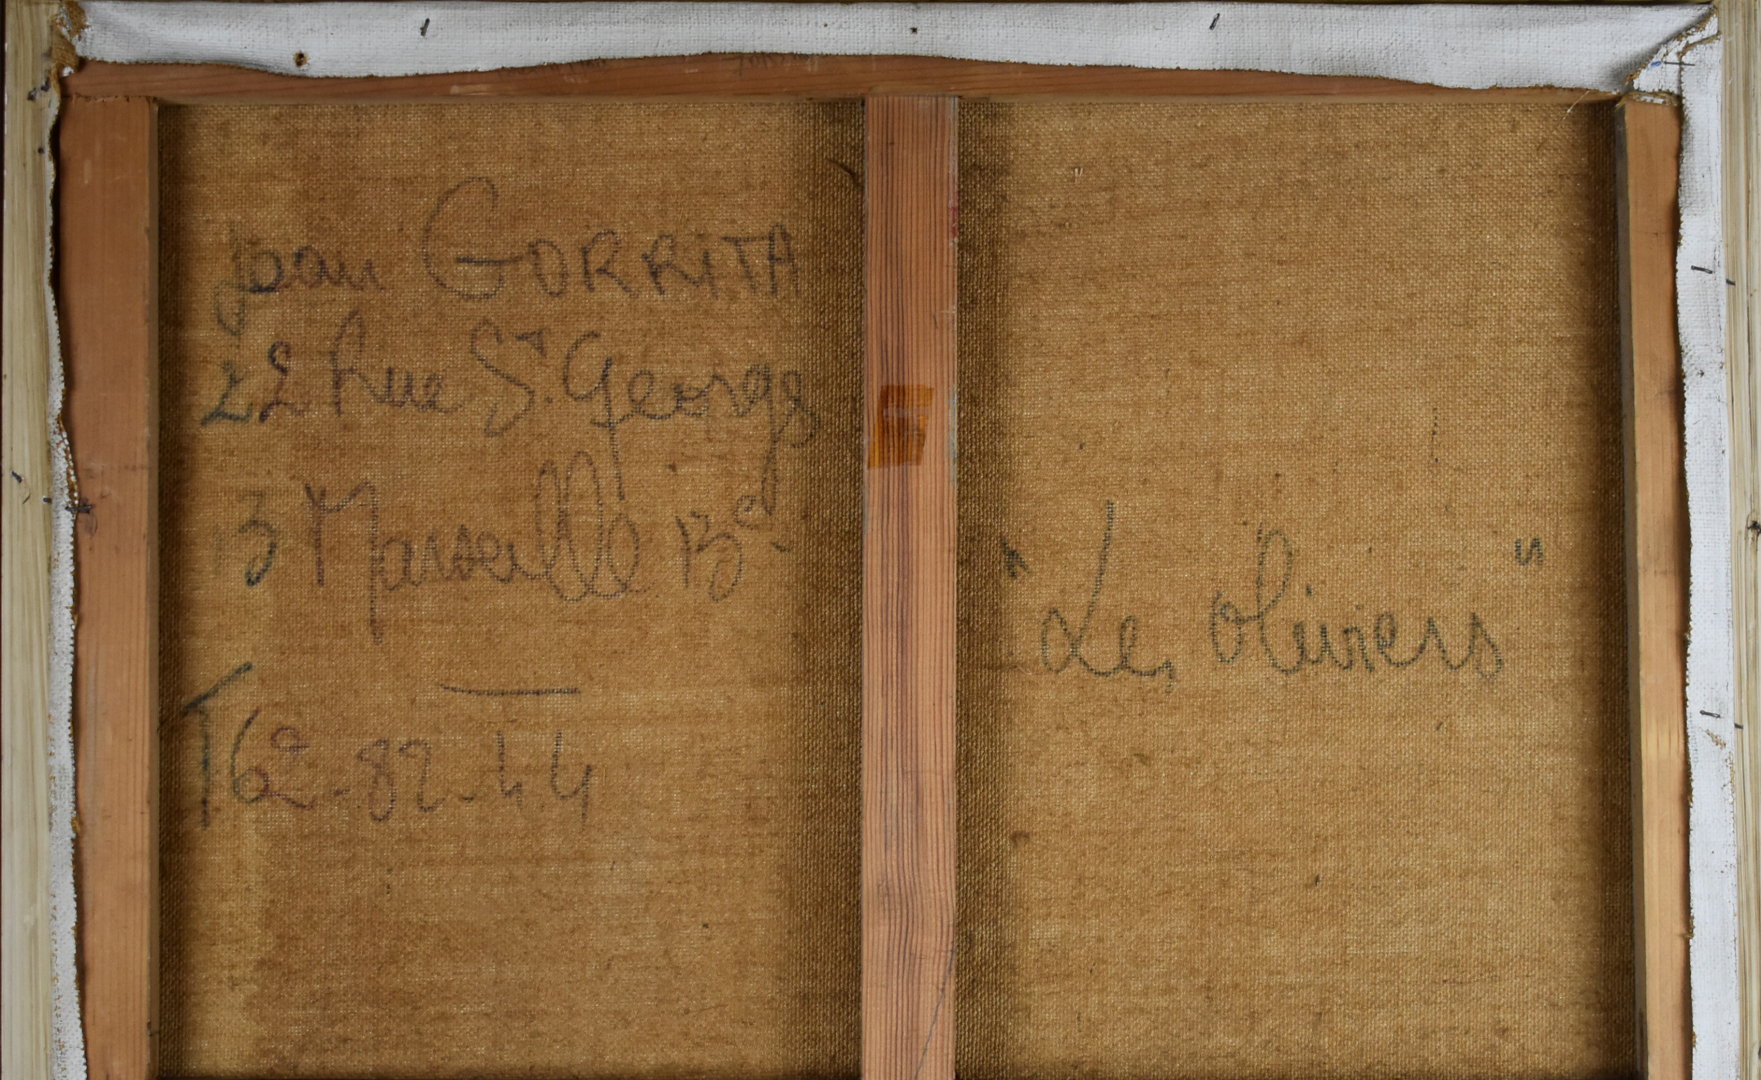 Jean GORRITA
22 Rue St. Georges
13 Marseille 13e
T 62-82-44
"Les oliviers"